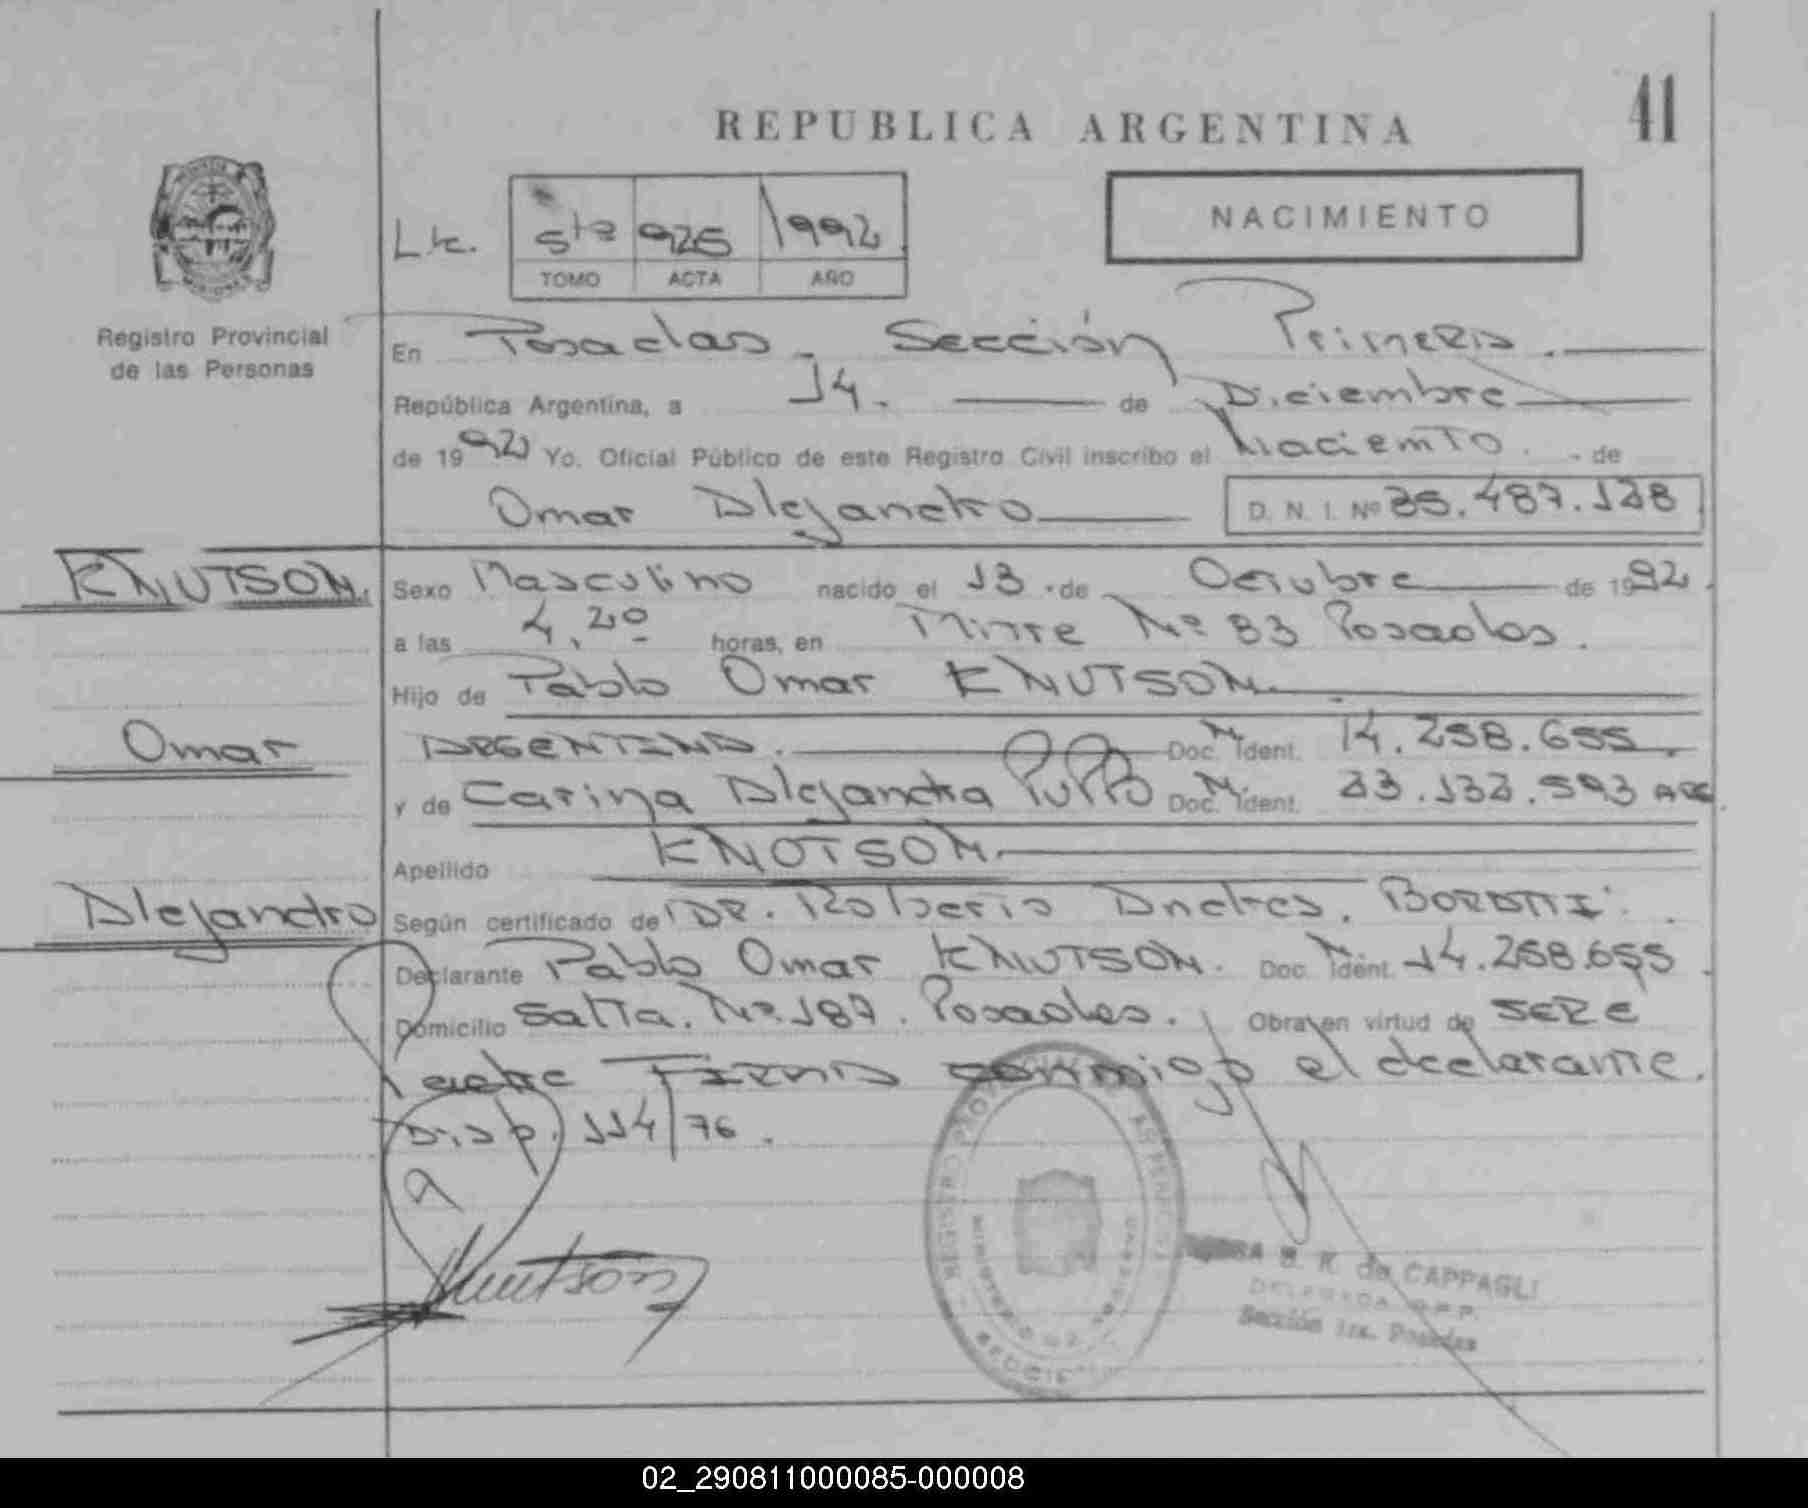 41
REPUBLICA ARGENTINA
NACIMIENTO
5ta 925 1992
TOMO ACTA AÑO
Registro Provincial
de las Personas
En Posadas, Sección Primera.
República Argentina, a 14. de Diciembre
de 1992 Yo. Oficial Público de este Registro Civil inscribo el Naciemto. de
Omar Alejandro D. N. I. Nº 35.487.128
KNUTSON. Sexo Masculino nacido el 13. de Octubre de 1992.
a las 4,20 horas, en Mitre Nº 83 Posadas.
Hijo de Pablo Omar KNUTSON.
Omar
ARGENTINO. Doc. N. Ident. 14.258.655.
y de Carina Alejandra PUPPO Doc. N. Ident. 23.132.593 ARG.
Apellido KNUTSON.
Alejandro
Según certificado de DR. Roberto Andres.
Declarante Pablo Omar KNUTSON. Doc. N. Ident. 14.258.655.
Domicilio Salta. Nº 187. Posadas. Obra en virtud de SER E
Padre FIRMA conmigo el declarante.
Disp. 114/76.
Knutson
REGISTRO PROVINCIAL DE LAS PERSONAS
MINISTERIO DE GOBIERNO
S. K. de CAPPAGLI
DELEGADA R.P.P.
Sección 1ra. Posadas
02_290811000085-000008